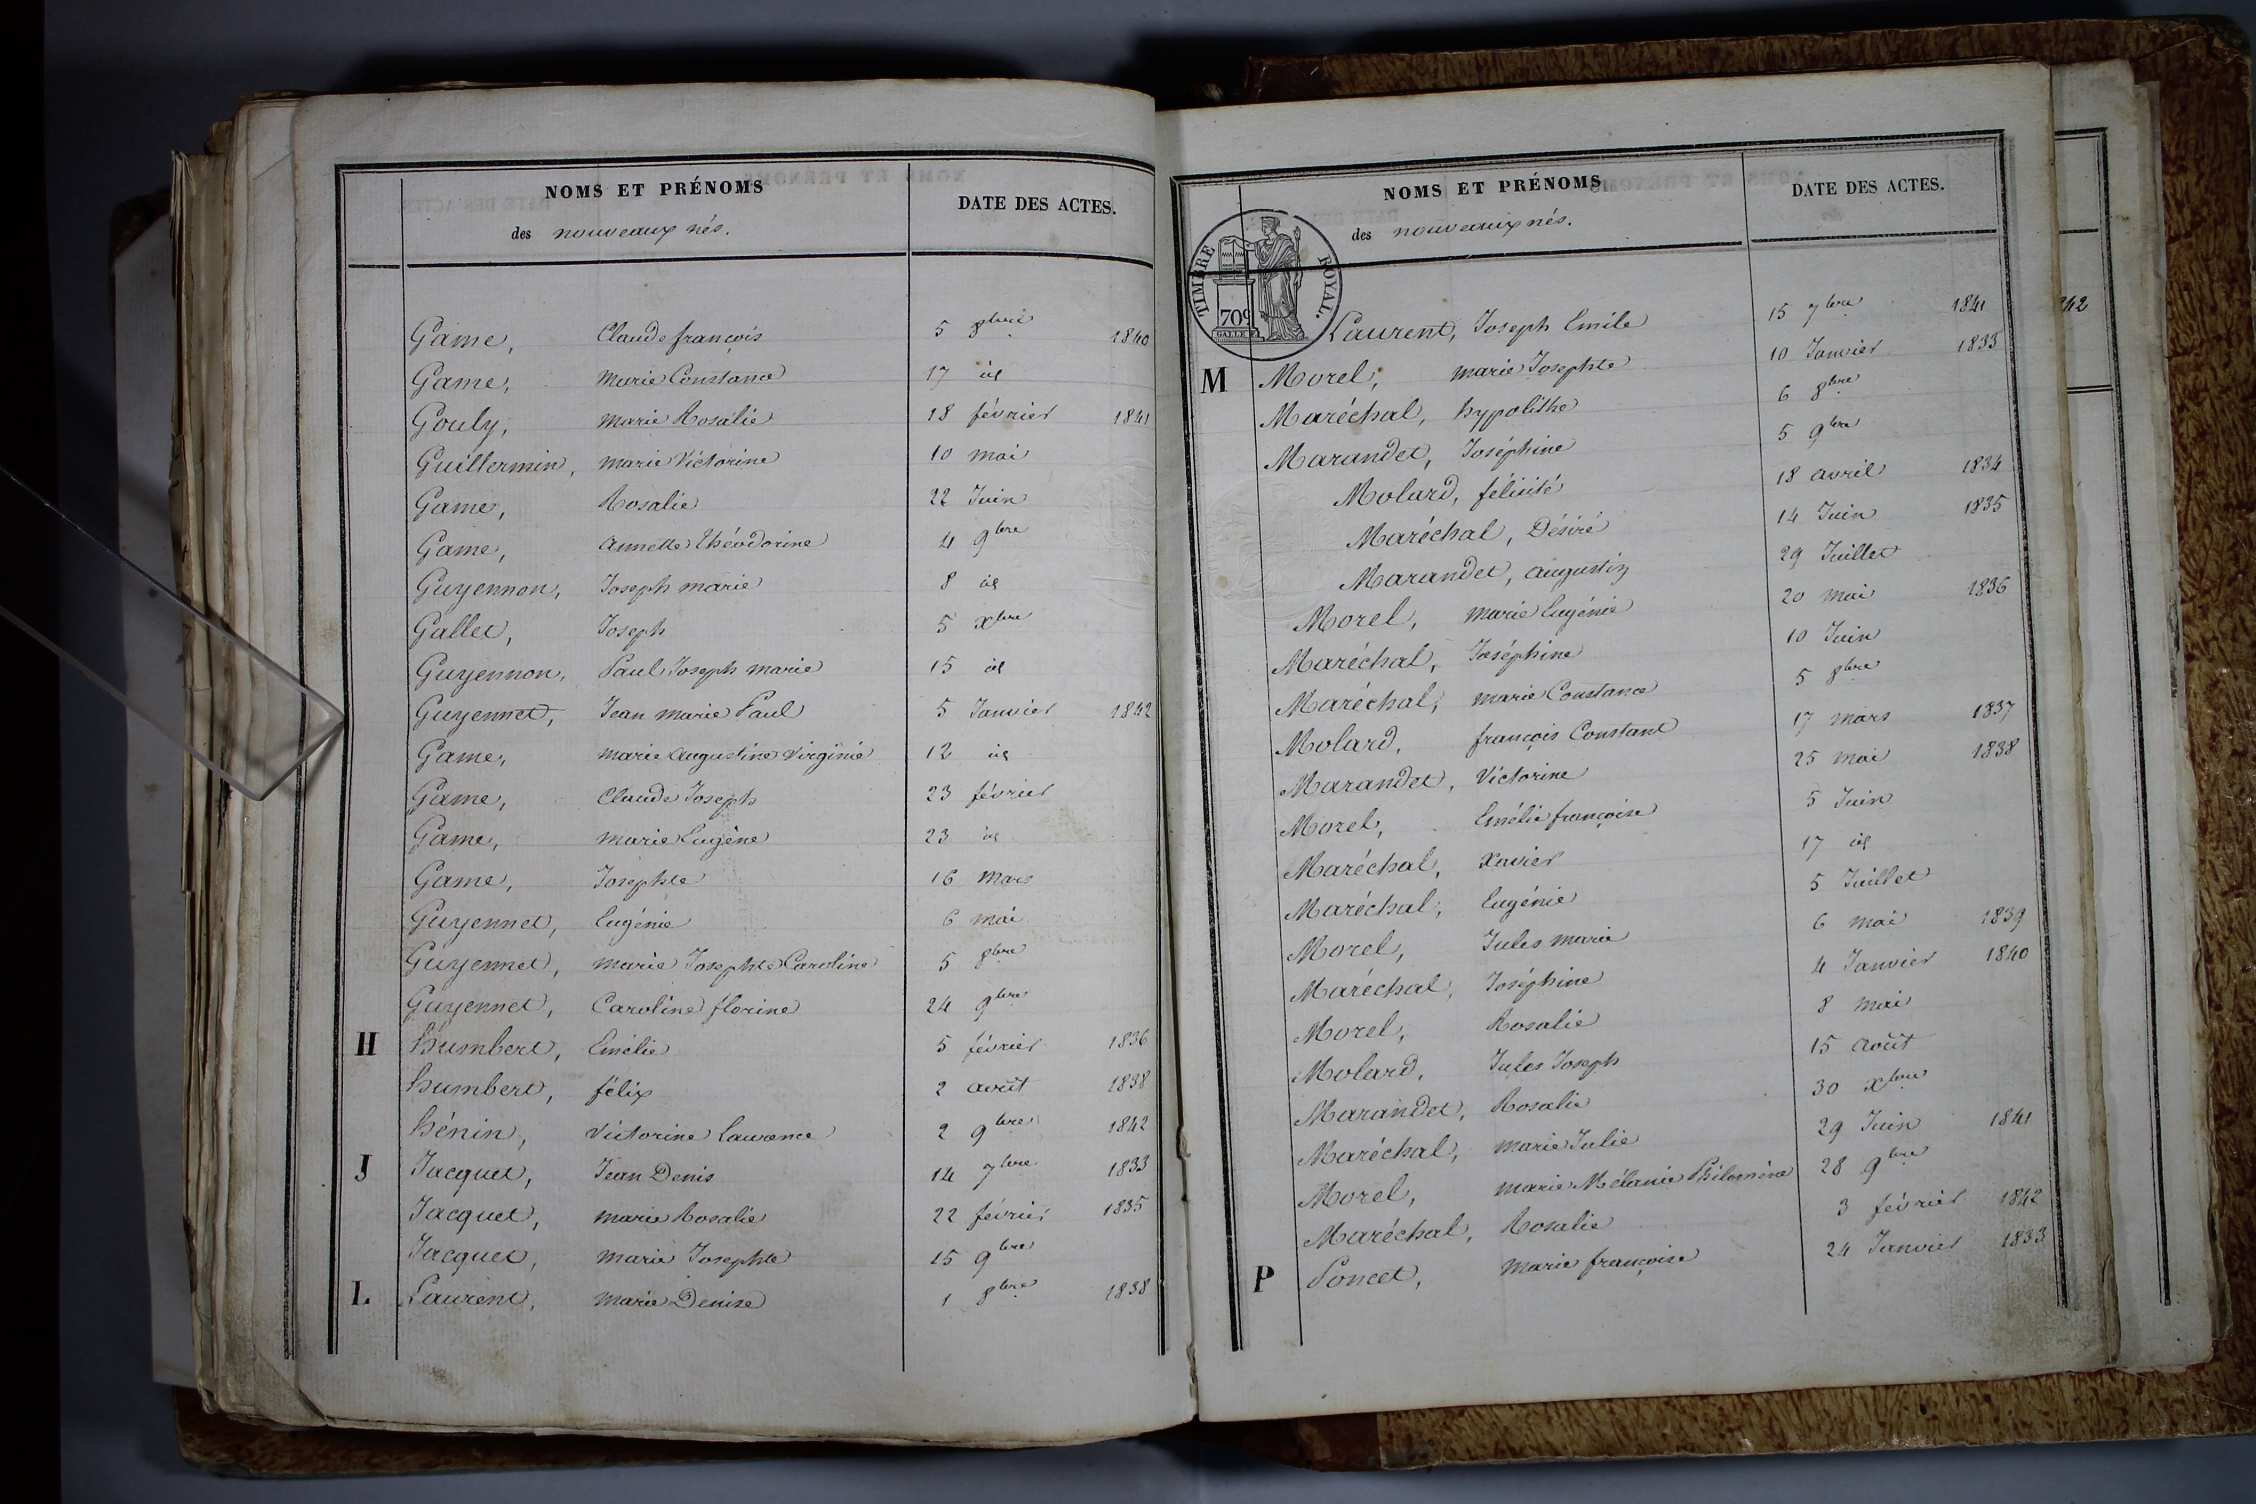 NOMS ET PRÉNOMS
des nouveaux nés.
DATE DES ACTES.
Game, Claude françois 5 8bre 1840
Game, Marie Constance 17 id
Gouly, Marie Rosalie 18 février 1841
Guillermin, Marie Victorine 10 mai
Game, Rosalie 22 Juin
Game, Annette Théodorine 4 9bre
Guyennon, Joseph marie 8 id
Gallet, Joseph 5 Xbre
Guyennon, Paul Joseph marie 15 id
Guyennet, Jean Marie Paul 5 Janvier 1842
Game, Marie Augustine Virginie 12 id
Game, Claude Joseph 23 février
Game, Marie Eugène 23 id
Game, Josephte 16 Mars
Guyennet, Eugénie 6 mai
Guyennet, Marie Josephte Caroline 5 8bre
Guyennet, Caroline florine 24 9bre
H humbert, Emélie 5 février 1836
humbert, félix 2 août 1838
hénin, Victorine Laurence 2 9bre 1842
J Jacquet, Jean Denis 14 7bre 1833
Jacquet, Marie Rosalie 22 février 1835
Jacquet, Marie Josephte 15 9bre
L Laurent, Marie Denise 1 8bre 1838
NOMS ET PRÉNOMS
des nouveaux nés.
DATE DES ACTES.
TIMBRE ROYAL.
70c
Laurent, Joseph Emile 15 7bre 1841
M Morel, Marie Josephte 10 Janvier 1833
Maréchal, hypolithe 6 8bre
Marandet, Joséphine 5 9bre
Molard, félicité 18 avril 1834
Maréchal, Désiré 14 Juin 1835
Marandet, augustin 29 Juillet
Morel, Marie Eugénie 20 mai 1836
Maréchal, Joséphine 10 Juin
Maréchal, Marie Constance 5 8bre
Molard, françois Constant 17 mars 1837
Marandet, Victorine 25 mai 1838
Morel, Emélie françoise 5 Juin
Maréchal, Xavier 17 id
Maréchal, Eugénie 5 Juillet
Morel, Jules Marie 6 mai 1839
Maréchal, Joséphine 4 Janvier 1840
Morel, Rosalie 8 mai
Molard, Jules Joseph 15 août
Marandet, Rosalie 30 Xbre
Maréchal, Marie Julie 29 Juin 1841
Morel, Marie Mélanie Philomène 28 9bre
Maréchal, Rosalie 3 février 1842
P Poncet, Marie françoise 24 Janvier 1833